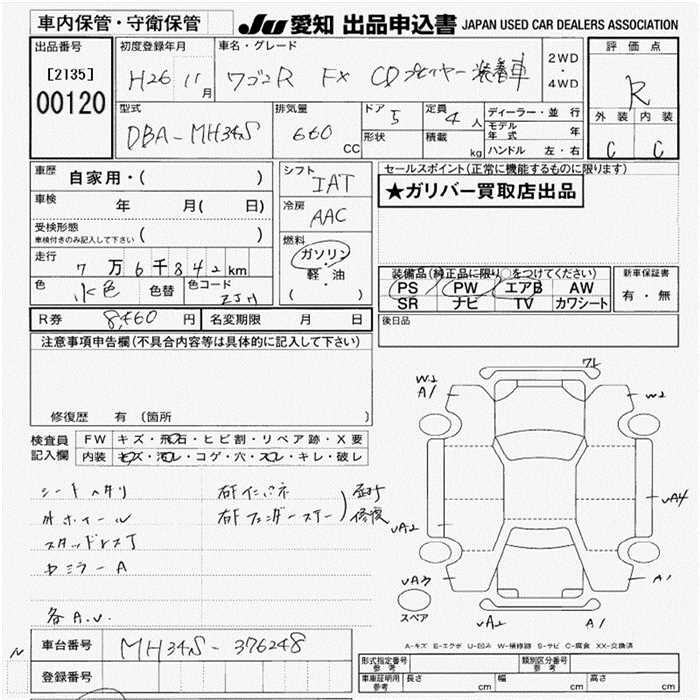 車内保管・守衛保管
JU 愛知 出品申込書 JAPAN USED CAR DEALERS ASSOCIATION
出品番号
[2135]
00120
初度登録年月
H26 11月
車名・グレード
ワゴンR FX CDプレイヤー装着車
2WD
・
4WD
評価点
R
外装 内装
C C
型式
DBA-MH34S
排気量
660 CC
ドア 5
形状
定員 4 人
積載 kg
ディーラー・並行
モデル年式 年
ハンドル 左・右
車歴
自家用・( )
車検
年 月( 日)
受検形態
車検付きのみ記入して下さい ( )
走行
7万6千842km
色 水色 色替 色コード ZJM
シフト
IAT
冷房
AAC
燃料
ガソリン
・
軽・油
( )
セールスポイント(正常に機能するものに限ります)
★ガリバー買取店出品
装備品(純正品に限り○をつけてください)
PS PW エアB AW
SR ナビ TV カワシート
新車保証書
有・無
R券 8,460 円 名変期限 月 日
後日品
注意事項申告欄(不具合内容等は具体的に記入して下さい)
修復歴 有 (箇所 )
検査員記入欄
FW キズ・飛石・ヒビ割・リペア跡・X要
内装 キズ・汚レ・コゲ・穴・スレ・キレ・破レ
シートヘタリ
オホイール
スタッドレス
ミラーA
各A.U.
右Fインパネ
右Fフェンダーステー
修復
W2
A1
フト
W2
UA2
UA4
UA3
スペア
A1
UA2
A1
A-キズ E-エクボ U-凹み W-補修跡 S-サビ C-腐食 XX-交換済
車台番号 MH34S-376248
登録番号
N
形式指定番号 参考
類別区分番号 参考
車庫証明用 参考 長さ cm 幅 cm 高さ cm